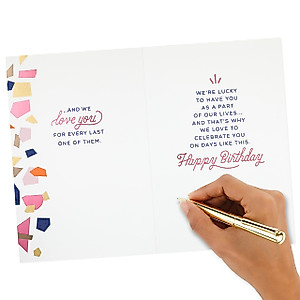 ...AND WE
love you
FOR EVERY LAST
ONE OF THEM.
WE'RE LUCKY
TO HAVE YOU
AS A PART
OF OUR LIVES...
AND THAT'S WHY
WE LOVE TO
CELEBRATE YOU
ON DAYS LIKE THIS.
Happy Birthday